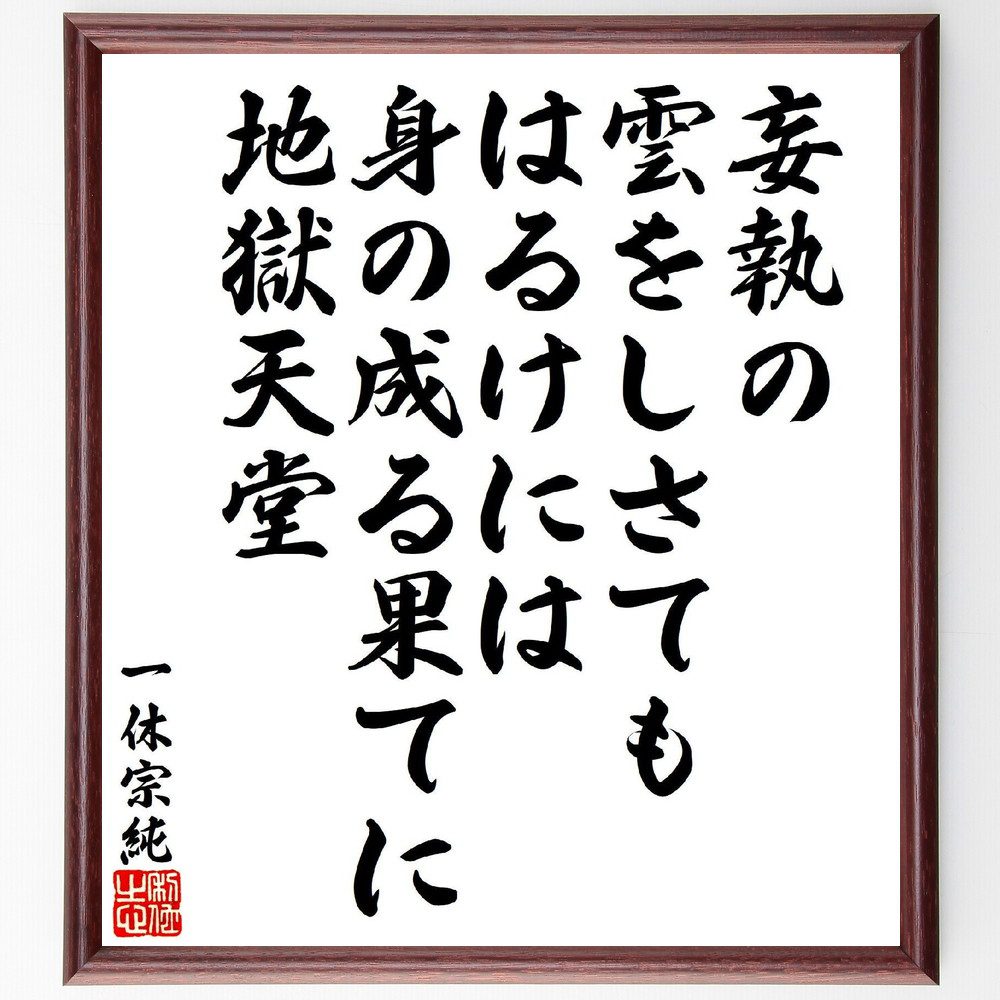 妄執の
雲をしさても
はるけには
身の成る果てに
地獄天堂
一休宗純